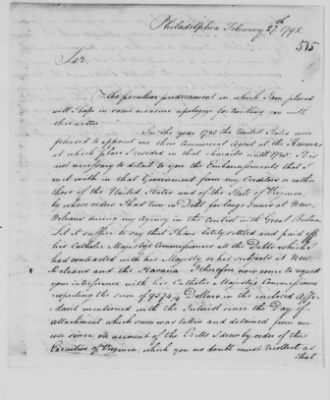 Philadelphia February 27th 1792
515
Sir,
The peculiar predicament in which I am placed
will I hope in some measure apologize for troubling you with
this letter
In the year 1780 the United States were
pleased to appoint me their Commercial Agent at the Havana
at which place I resided in that character until 1785. It is
not necessary to detail to you the Embarrassments that I
met with in that Government from my Creditors on either
those of the United States and of the State of Virginia,
by whose orders I had run in Debt for large Sums at New
Orleans during my agency in the contest with Great Britain
Let it suffice to say that I have lately settled and paid off
his Catholic Majesty's Commissioners all the Debts which I
had contracted with his Majesty or his subjects at New
Orleans and the Havana. I therefore now come to request
your interference with his Catholic Majesty's Commissioners
respecting the sum of 9574 Dollars in the inclosed Affi-
davit mentioned with the Interest since the Day of
attachment which sum was taken and detained from me
on account of the Bills I drew by order of the
Executive of Virginia, which you no doubt must recollect as
that